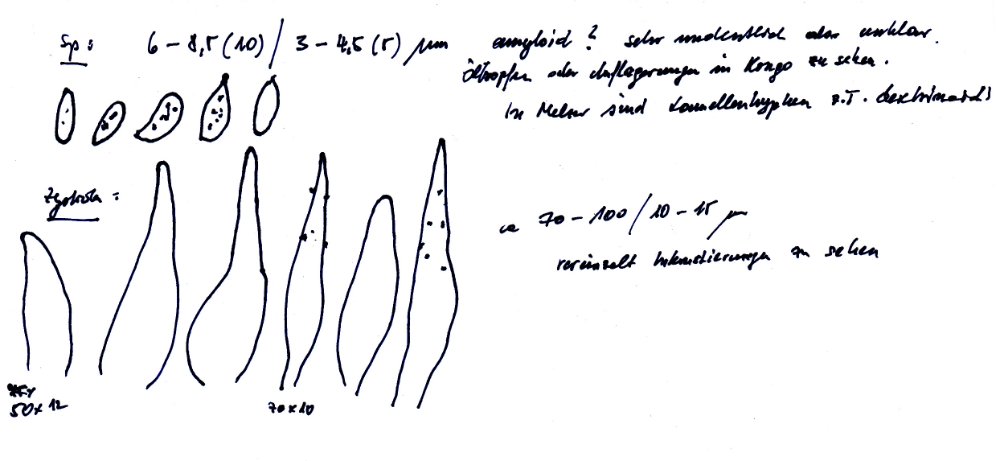 Sp: 6 – 8,5 (10) / 3 – 4,5 (5) µm amyloid? sehr undeutlich oder unklar.
Öltropfen oder Auflagerungen in Kongo zu sehen.
In Melzer sind Lamellenhyphen z.T. dextrinoid!
Zystiden:
ca 70 – 100 / 10 – 15 µm
vereinzelt Inkrustierungen zu sehen
50 x 12
70 x 10